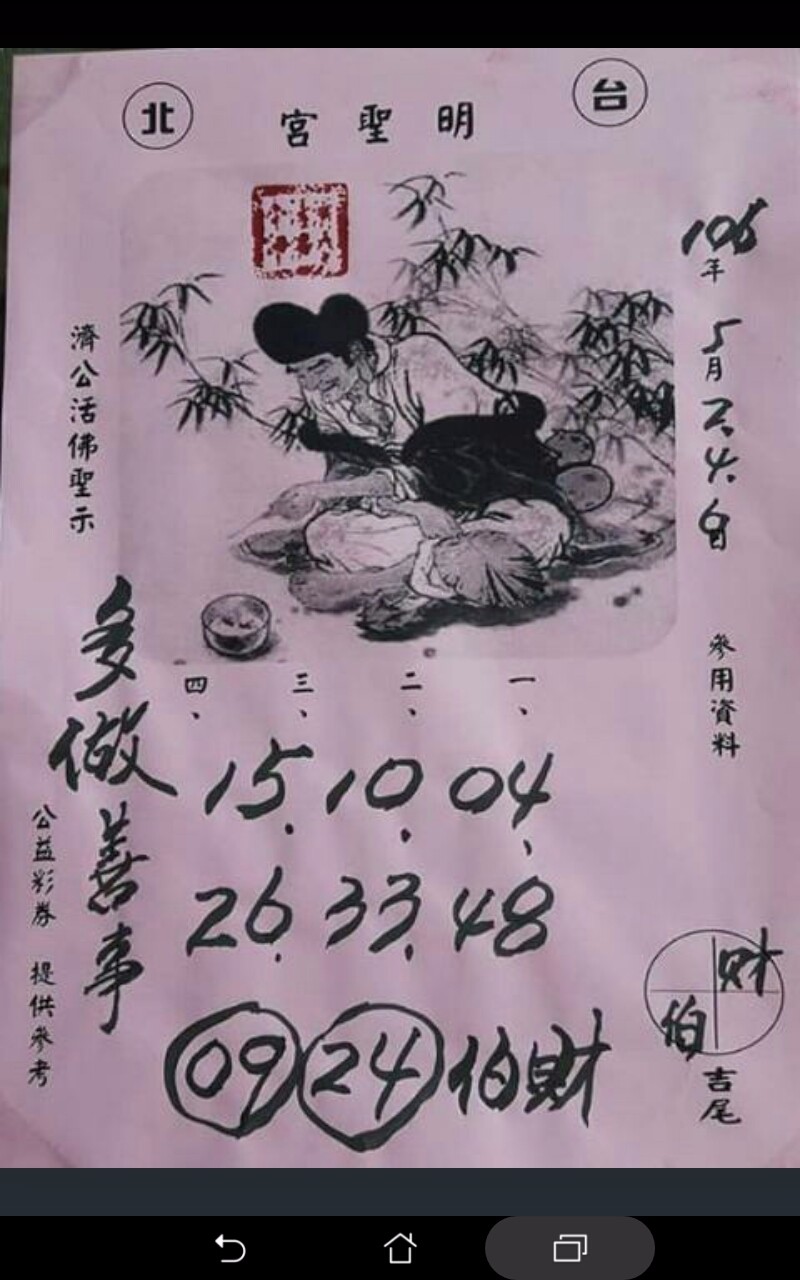 台北
明聖宮
106年5月24日
參用資料
一、二、三、四、
04、10.15.
48 33.26.
09 24 伯財
財
伯
吉尾
濟公活佛聖示
多做善事
公益彩券 提供參考